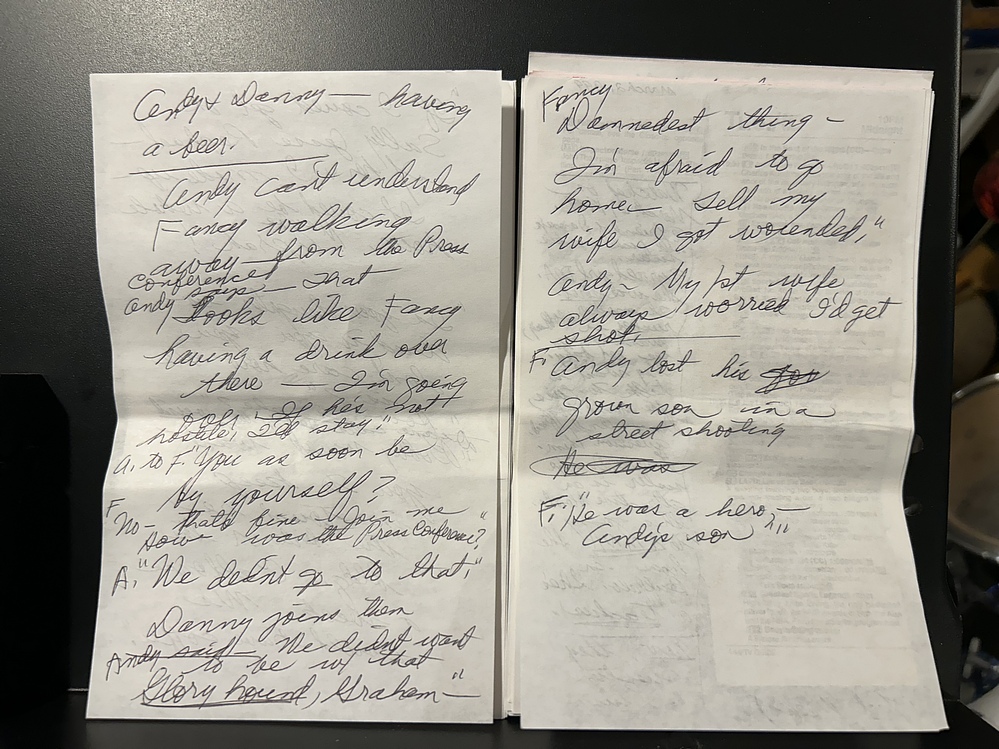 Andy + Danny — having
a beer.
Andy can't understand
Fancy walking
away from the Press
Conference
Andy says — That
Looks like Fancy
having a drink over
there — I'm going
over. If he's not
hostile, I'll stay."
A. to F. "You as soon be
by yourself?
F
No - that's fine - Join me
How was the Press Conference?"
A. "We didn't go to that."
Danny joins them
Andy said - We didn't want
to be w/ that
Glory hound, Graham —"
Fancy
Damnedest thing -
I'm afraid to go
home - tell my
wife I got wounded,"
Andy - My 1st wife
always worried I'd get
shot.
F. Andy lost his son
grown son in a
street shooting
He was
F. "He was a hero, —
Andy's son"